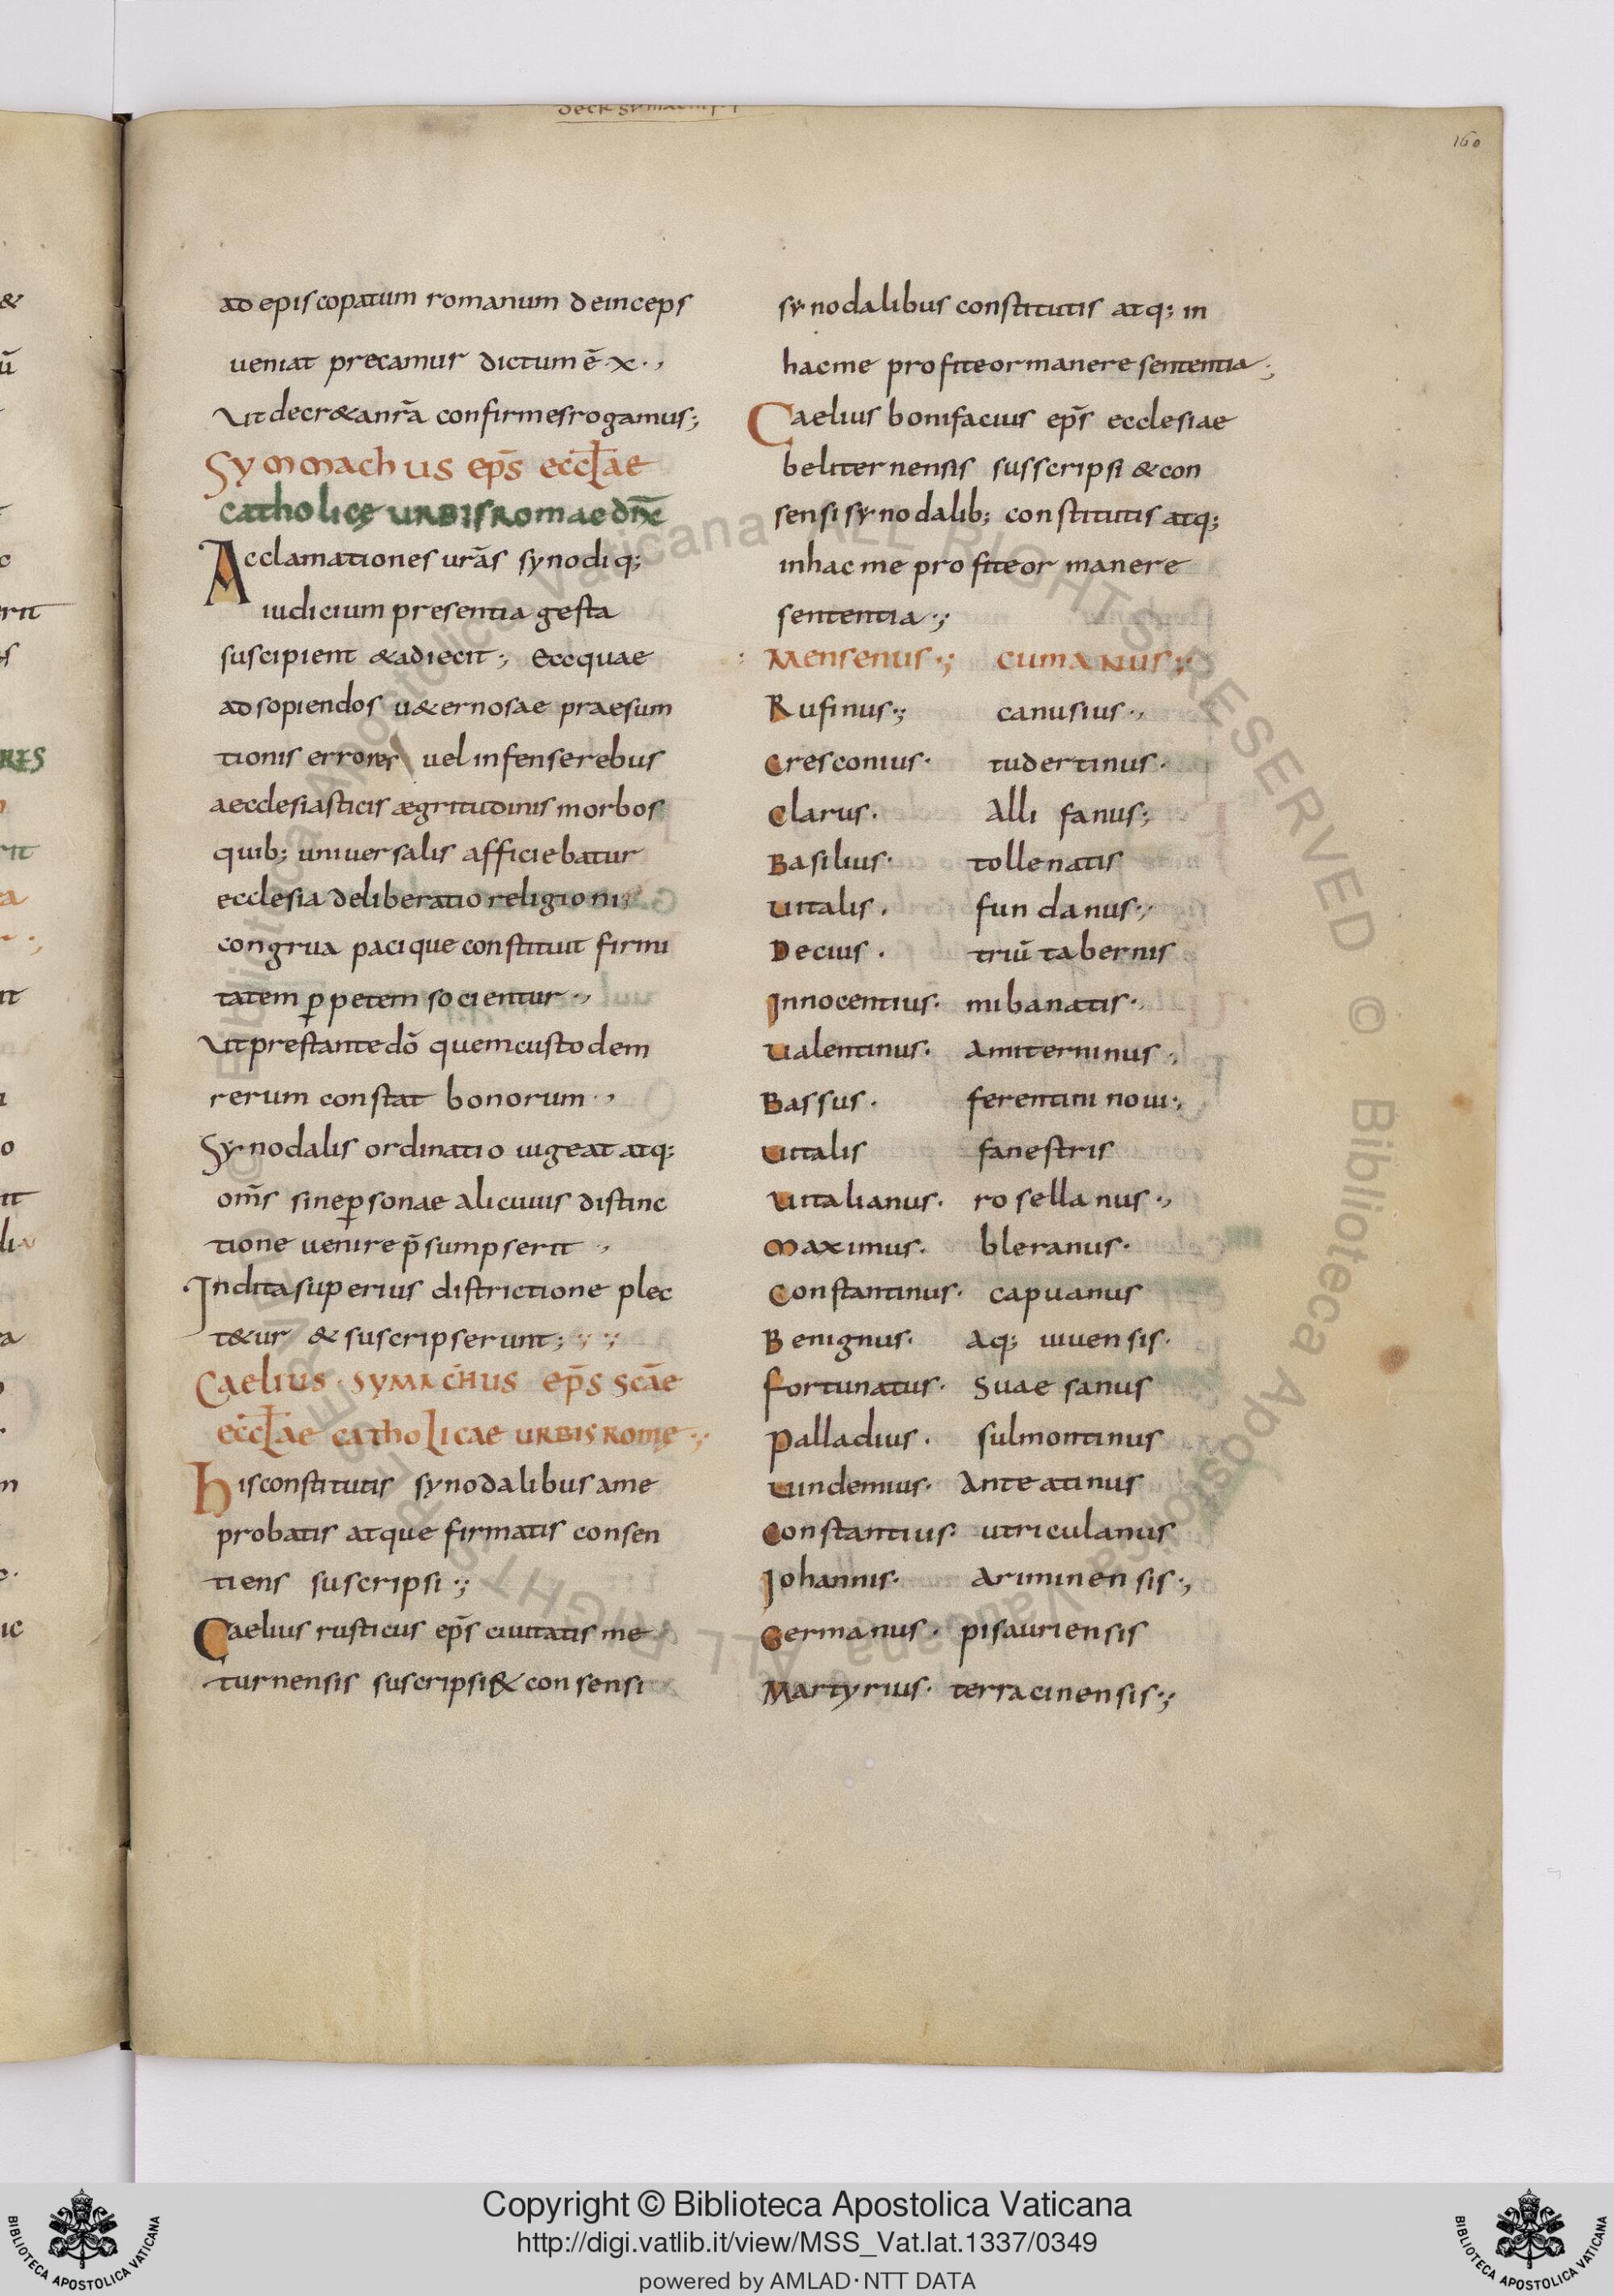 160
ad episcopatum romanum deinceps
ueniat precamur dictum ē · x ·,
Ut decr&a nr̄a confirmes rogamus;
Symmachus ep̄s eccl̄ae
catholicę urbis romae dix̄
Acclamationes urās synodiq;
iudicium presentia gesta
suscipient & adiecit ·; Eccquae
ad sopiendos u&ernosae praesum
tionis errores uel infense rebus
aecclesiasticis ægritudinis morbos
quib; uniuersalis afficiebatur
ecclesia deliberatio religioni
congrua pacique constituit firmi
tatem ꝑpetem socientur ·,
Ut prestante dō quem custodem
rerum constat bonorum ·,
Synodalis ordinatio uigeat atq;
om̄s sine ꝑsonae alicuius distinc
tione uenire p̄sumpserit ·,
Indita superius districtione plec
t&ur & suscripserunt ;
Caelius · symachus ep̄s sc̄ae
eccl̄ae catholicae urbis romę ·;
His constitutis synodalibus a me
probatis atque firmatis consen
tiens suscripsi ·;
Caelius rusticus ep̄s ciuitatis me
turnensis suscripsi & consensi
synodalibus constitutis atq; in
hac me profiteor manere sententia ;
Caelius bonifacius ep̄s ecclesiae
beliternensis susscripsi & con
sensi synodalib; constitutis atq;
in hac me profiteor manere
sententia ·;
Mensenus ·; cumanus ·;
Rufinus ·; canusius ·,
Cresconius · tudertinus ·
Clarus · Alli fanus ;
Basilius · tollenatis
Uitalis · fundanus ·,
Decius · triū tabernis
Innocentius · mibanatis ·
Ualentinus · amiterninus ·,
Bassus · ferentini noui ·,
Uitalis fanestris
Uitalianus · rosellanus ·,
Maximus · bleranus ·
Constantinus · capuanus
Benignus · Aq; uiuensis ·
fortunatus · Suaesanus
Palladius · sulmontinus
Uindemius · Anteatinus
Constantius · utriculanus
Johannis · Ariminensis ·,
Germanus · pisauriensis
Martyrius · terracinensis ·;
Copyright © Biblioteca Apostolica Vaticana
http://digi.vatlib.it/view/MSS_Vat.lat.1337/0349
powered by AMLAD·NTT DATA
BIBLIOTECA APOSTOLICA VATICANA
BIBLIOTECA APOSTOLICA VATICANA